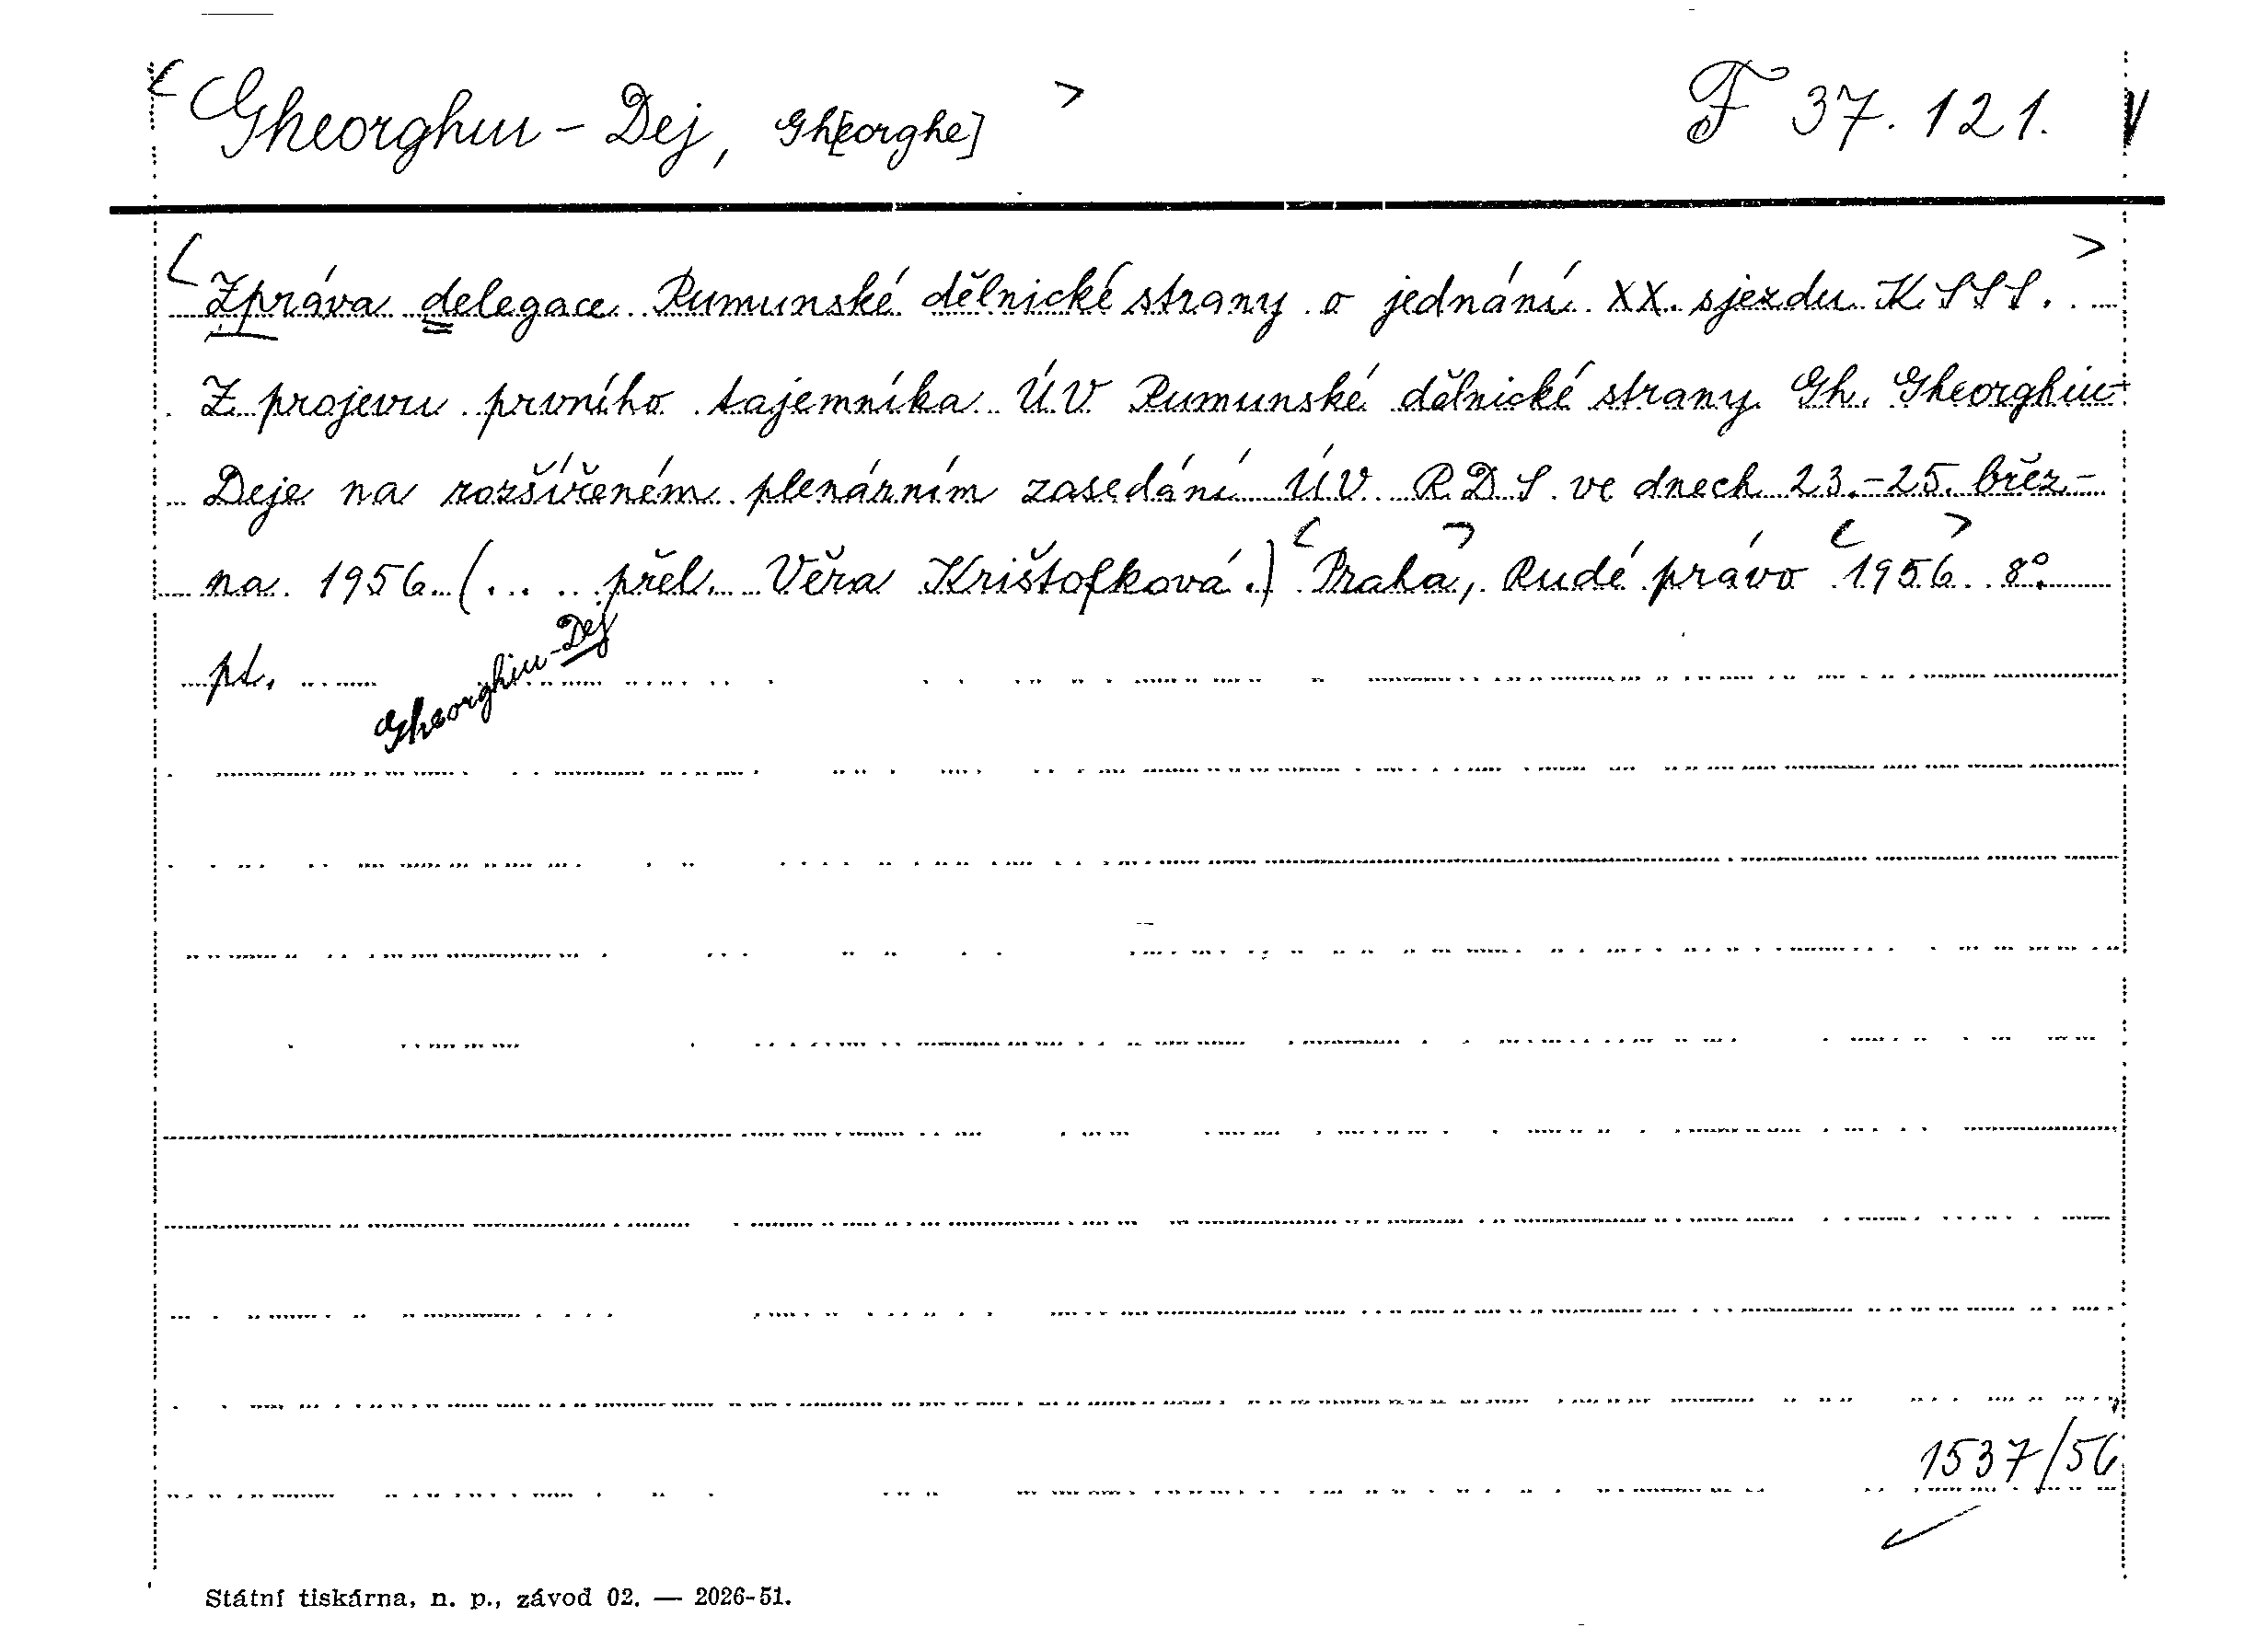 < Gheorghiu - Dej, Gh[eorghe] > F 37.121. V
< Zpráva delegace Rumunské dělnické strany o jednání XX. sjezdu KSSS. >
Z projevu prvního tajemníka ÚV Rumunské dělnické strany Gh. Gheorghiu-
Deje na rozšířeném plenárním zasedání ÚV RDS ve dnech 23.-25. břez-
na 1956 (... přel. Věra Krištofková.) <Praha>, Rudé právo <1956> 8°.
pt.
Gheorghiu-Dej
1537/56
Státní tiskárna, n. p., závod 02. — 2026-51.